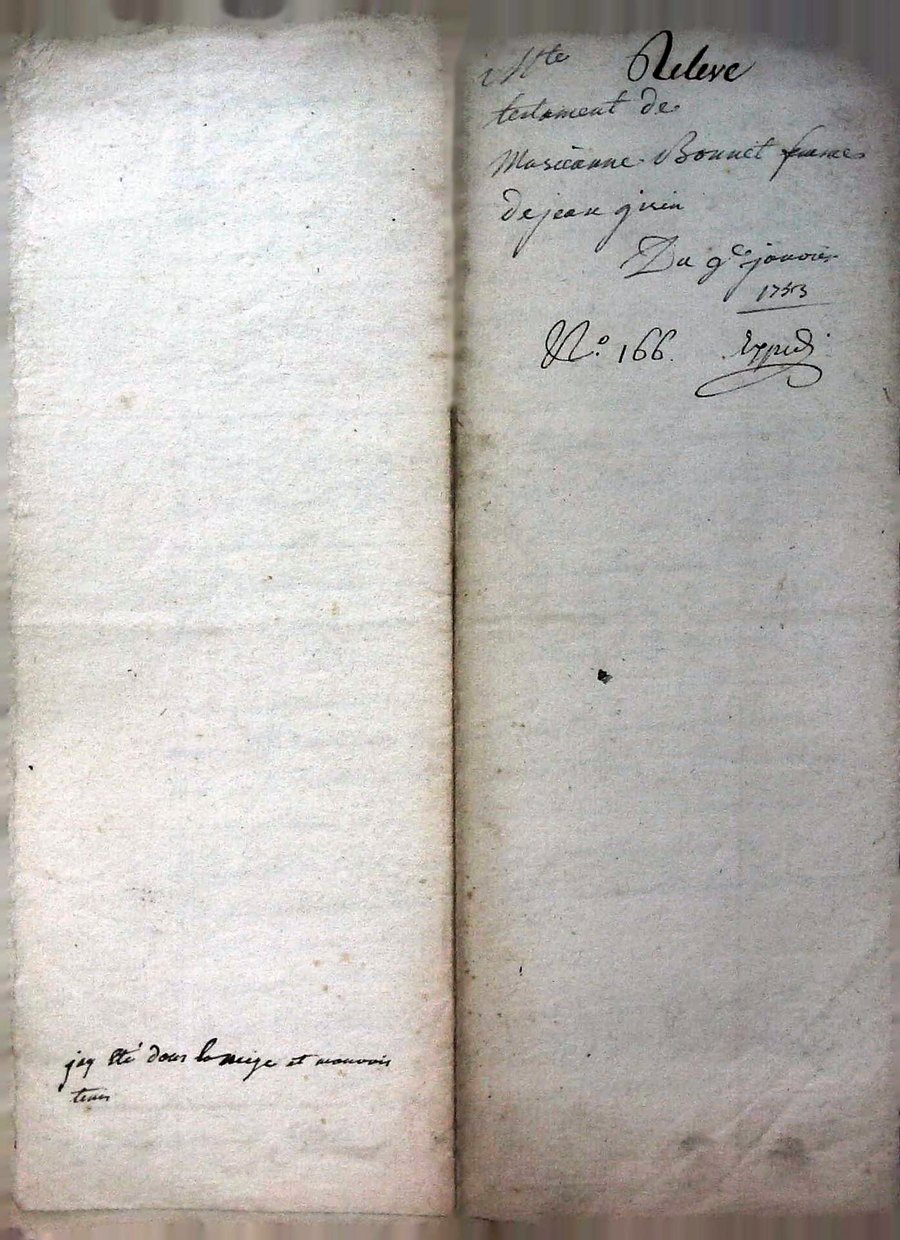 jay été dans la neige et mauvais
tems
Releve
testament de
Marieanne Bonnet femme
de jean
Du 9e janvier
1753
N.o 166. Expedi